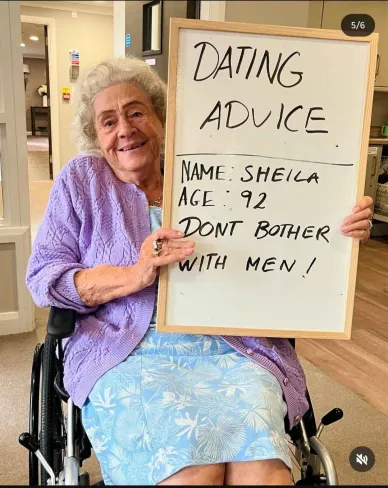 5/6
DATING
ADVICE
NAME: SHEILA
AGE: 92
DONT BOTHER
WITH MEN!